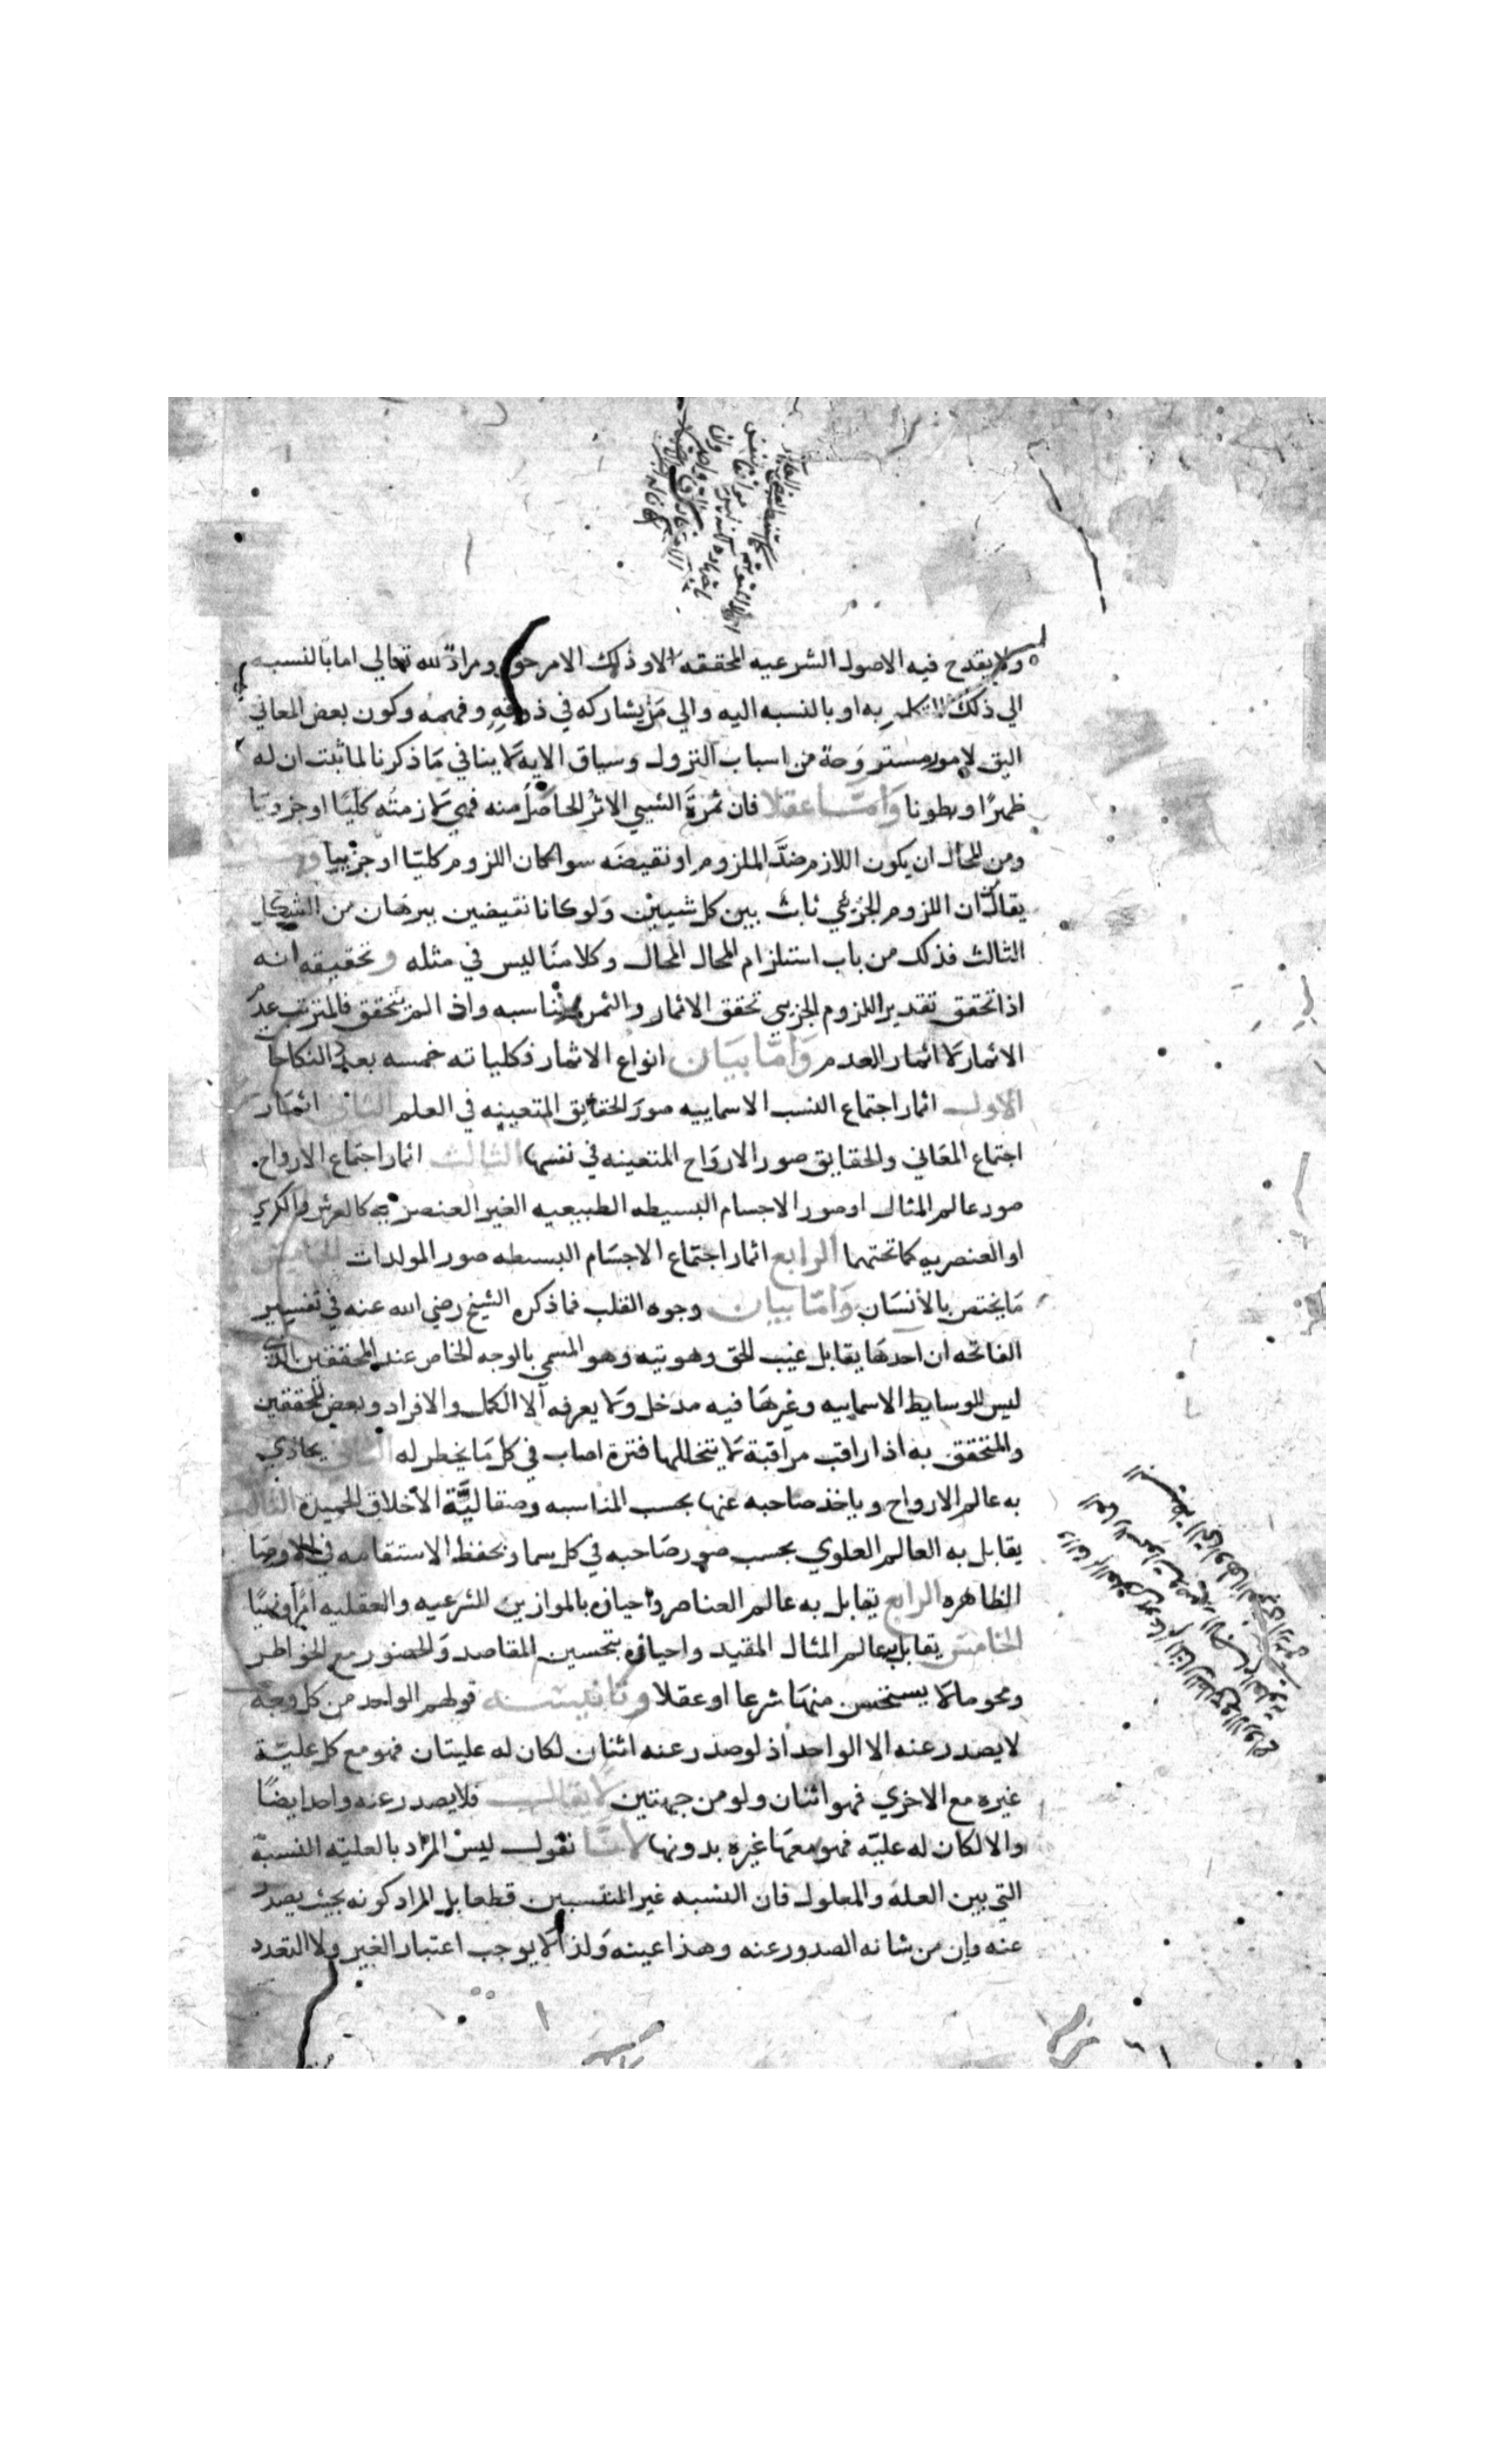 ولا يقدح فيه الاصول الشرعيه المحققه الا وذلك الامر حق ومراد لله تعالي اما بالنسبه
الي ذلك المتكلم به او بالنسبه اليه والي من يشاركه في ذوقه وفهمه وكون بعض المعاني
اليق لامور مستروحة من اسباب النزول وسياق الايه لا ينافي ما ذكرنا لما ثبت ان له
ظهرًا وبطونا وامّا عقلا فان ثمرة الشيي الاثر الحاصل منه فهي لازمته كليًا او جزويًا
ومن المحال ان يكون اللازم ضدَّ الملزوم او نقيضَه سوا كان اللزوم كليّا او جزييا
يقال ان اللزوم الجزيي ثابت بين كل شيين ولو كانا نقيضين ببرهان من الشكل
الثالث فذلك من باب استلزام المحال المحال وكلامنا ليس في مثله وتحقيقه انه
اذا تحقق تقدير اللزوم الجزيي تحقق الاثمار والثمر يناسبه واذا لم يتحقق فالمترتب عدم
الاثمار لا اثمار العدم وَامّا بيَان انواع الاثمار فكلياته خمسه بعدد النكاحات
الاول اثمار اجتماع النسب الاسماييه صور الحقايق المتعينه في العلم الثاني اثمار
اجتماع المعاني والحقايق صور الارواح المتعينه في نفسها الثالث اثمار اجتماع الارواح
صور عالم المثال او صور الاجسام البسيطه الطبيعيه الغير العنصريه كالعرش والكرسي
او العنصريه كما تحتهما الرابع اثمار اجتماع الاجسام البسيطه صور المولدات الخامس
ما يختص بالانسان وَامّا بيان وجوه القلب فما ذكره الشيخ رضي الله عنه في تفسير
الفاتحه ان احدها يقابل غيب الحق وهويته وهو المسمي بالوجه الخاص عند المحققين الذي
ليس للوسايط الاسماييه وغيرها فيه مدخل ولا يعرفه الا الكمل والافراد وبعض المحققين
والمتحقق به اذا راقب مراقبة لا يتخللها فترة اصاب في كل ما يخطر له الثاني يحاذي
به عالم الارواح وياخذ صاحبه عنها بحسب المناسبه وصقاليَّة الاخلاق الحميدة الثالث
يقابل به العالم العلوي بحسب صور صاحبه في كل سما وبحفظ الاستقامه في الاوصاف
الظاهره الرابع يقابل به عالم العناصر واحياؤه بالموازين الشرعيه والعقليه امرًا ونهيًا
الخامس يقابل به عالم المثال المقيد واحياؤه بتحسين المقاصد والحضور مع الخواطر
ومحو ما لا يستحسن منها شرعا او عقلا وتانيسه قولهم الواحد من كل وجه
لا يصدر عنه الا الواحد اذ لو صدر عنه اثنان لكان له عليتان فهو مع كل عليّة
غيره مع الاخري فهو اثنان ولو من جهتين لا يقال فلا يصدر عنه واحد ايضًا
والا لكان له عليّه فهو معها غيره بدونها لانّا نقول ليس المراد بالعليّه النسبة
التي بين العله والمعلول فان النسبه غير المنتسبين قطعا بل المراد كونه بحيث يصدر
عنه وان من شانه الصدور عنه وهذا عينه ولذا لا يوجب اعتبار الغير ولا التعدد